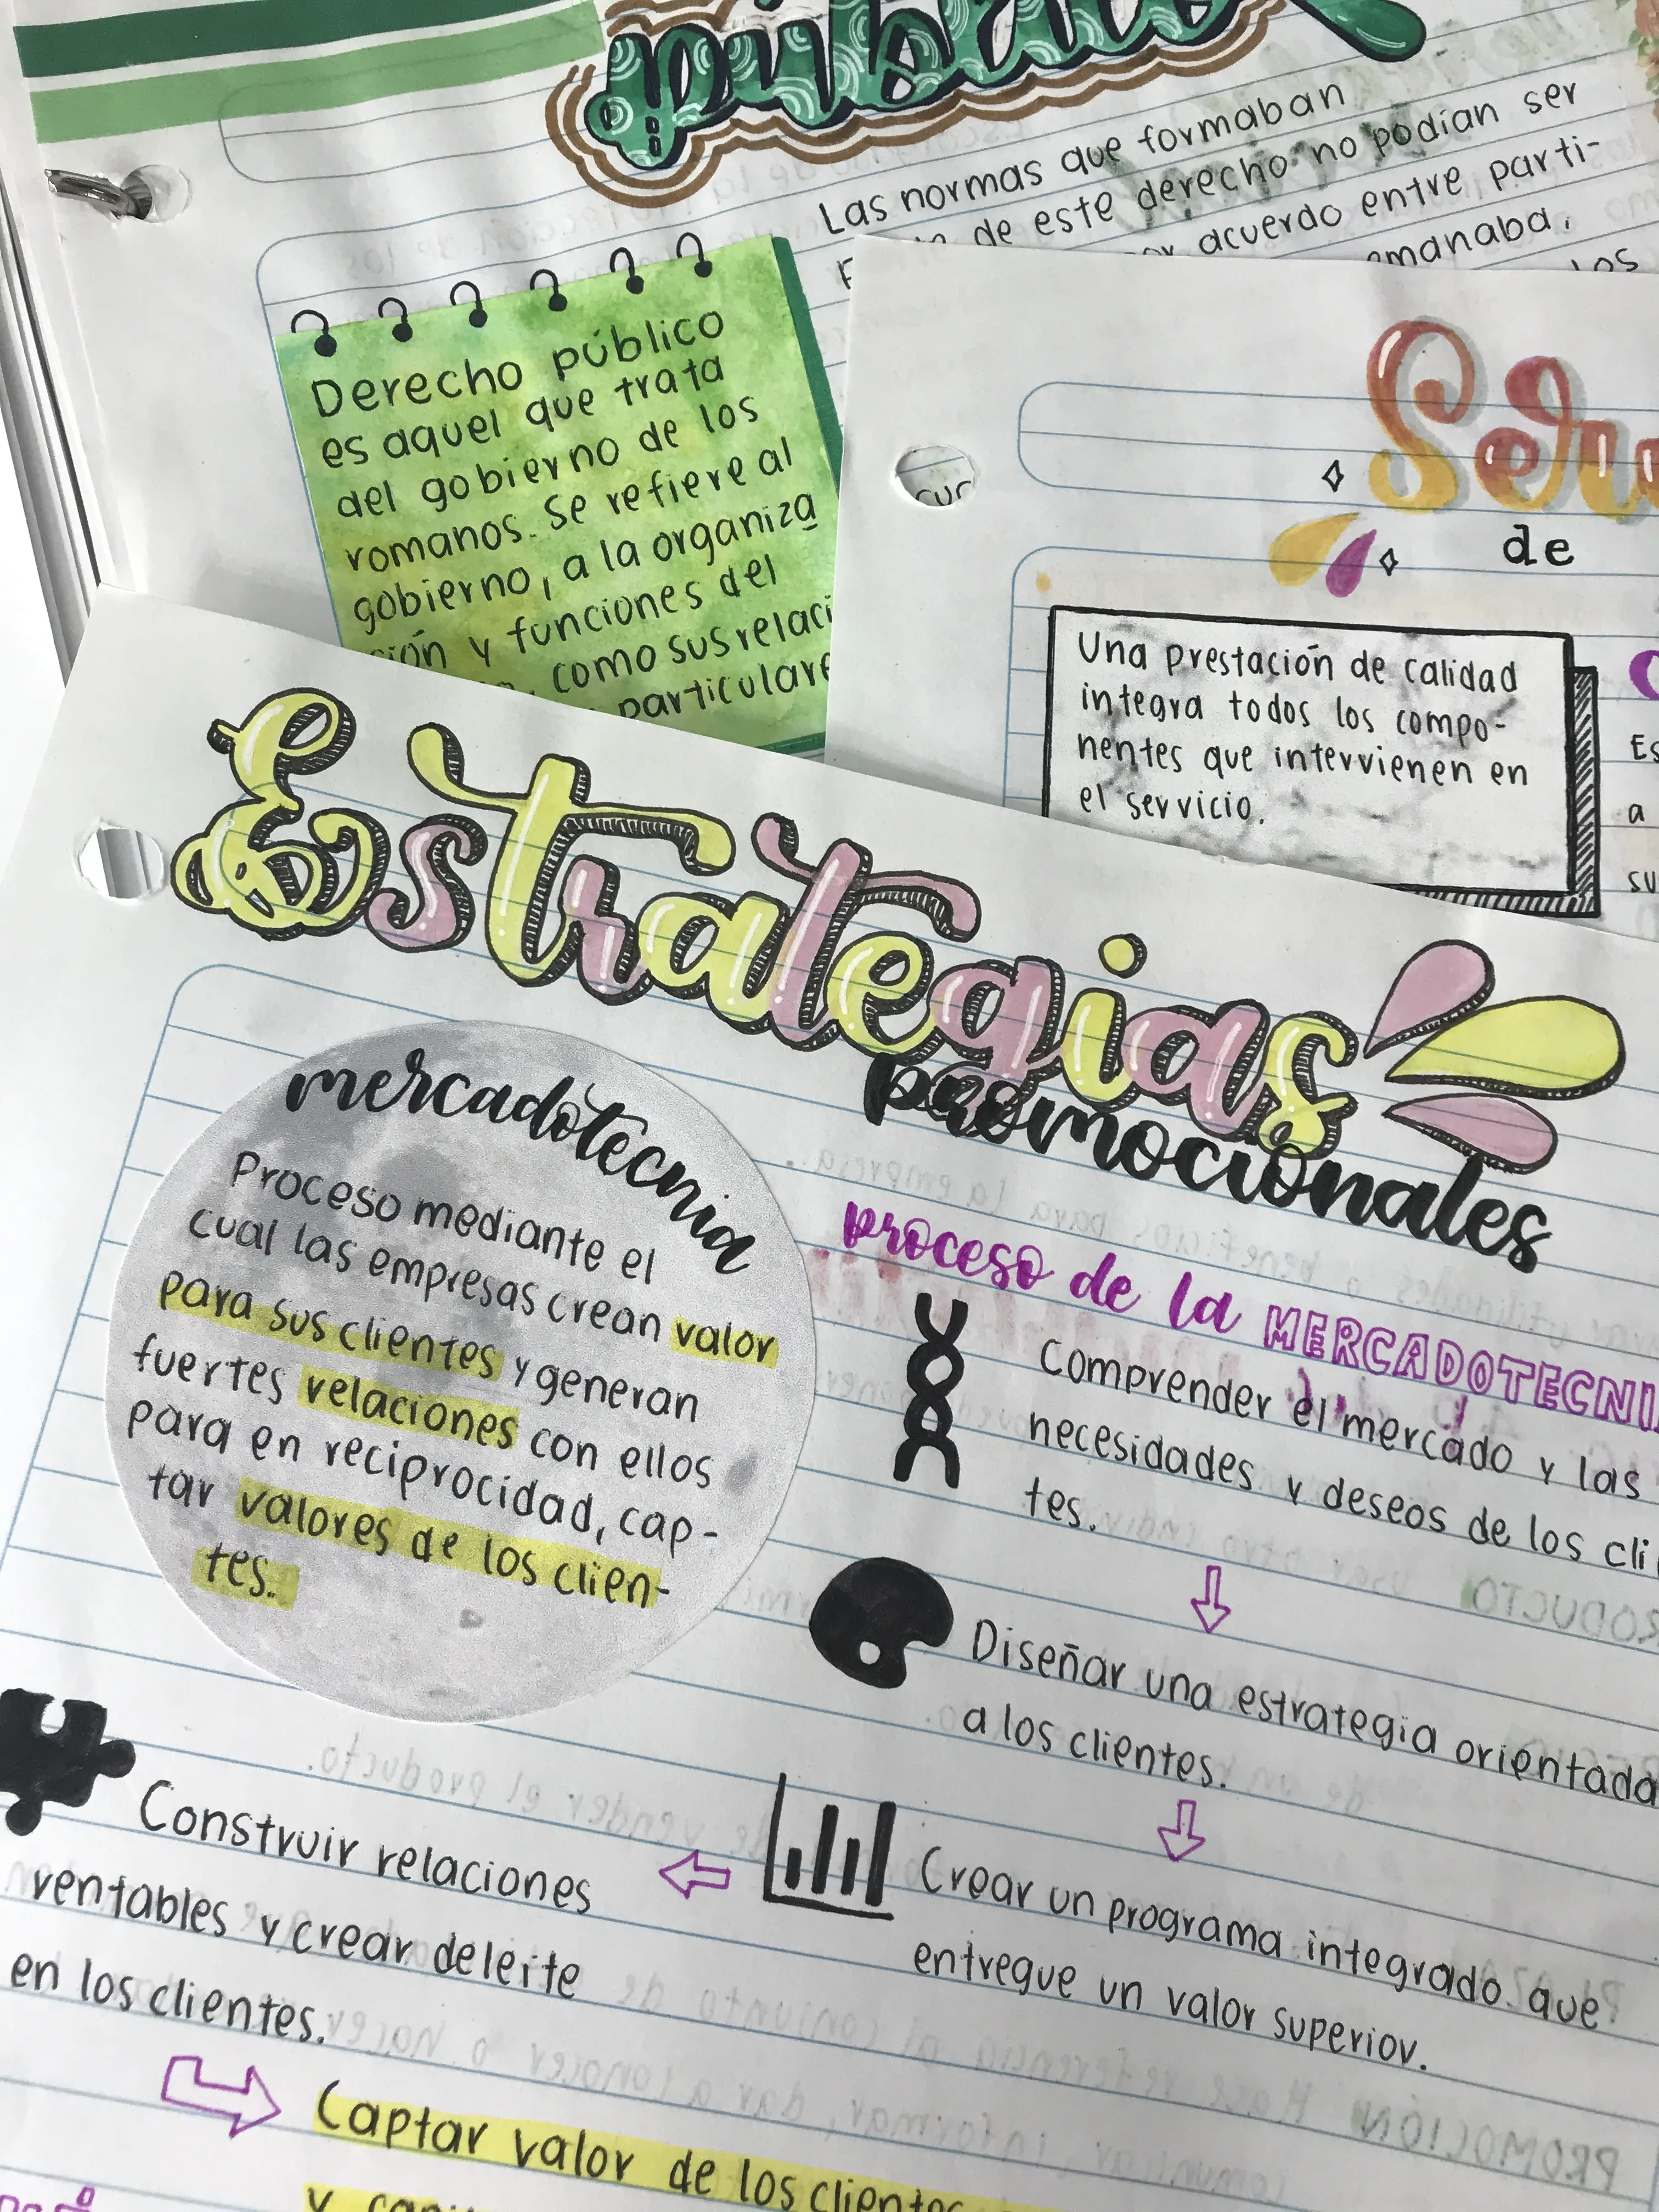 público
Las normas que formaban
de este derecho no podían ser
acuerdo entre parti-
emanaba,
los
Derecho público
es aquel que trata
del gobierno de los
romanos. Se refiere al
gobierno, a la organiza
ción y funciones del
como sus relaci
particulare
cur
Ser
de
Una prestación de calidad
integra todos los compo-
nentes que intervienen en
el servicio.
Es
a
su
Estrategias
promocionales
mercadotecnia
Proceso mediante el
cual las empresas crean valor
para sus clientes y generan
fuertes relaciones con ellos
para en reciprocidad, cap-
tar valores de los clien-
tes.
proceso de la MERCADOTECNI
Comprender el mercado y las
necesidades y deseos de los cli
tes.
Diseñar una estrategia orientada
a los clientes.
Crear un programa integrado que
entregue un valor superior.
Construir relaciones
rentables y crear deleite
en los clientes.
Captar valor de los cliente
y